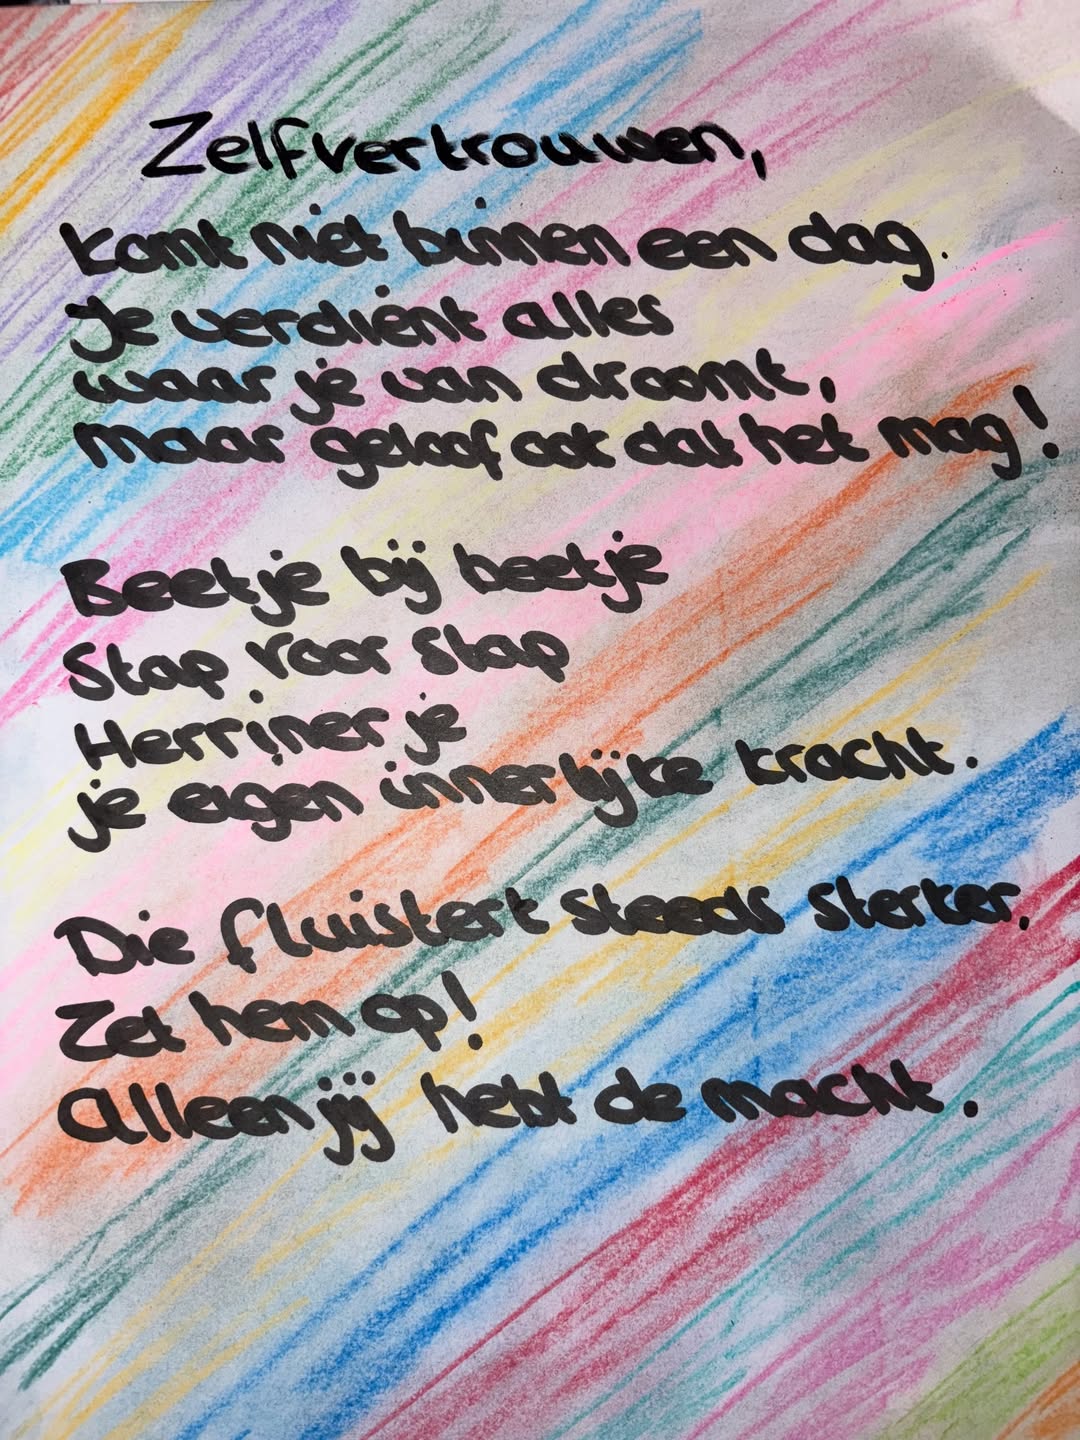 Zelfvertrouwen,
komt niet binnen een dag.
Je verdient alles
waar je van droomt,
maar geloof ook dat het mag!
Beetje bij beetje
Stap voor stap
Herriner je
je eigen innerlijke kracht.
Die fluistert steeds sterker.
Zet hem op!
Alleen jij hebt de macht.